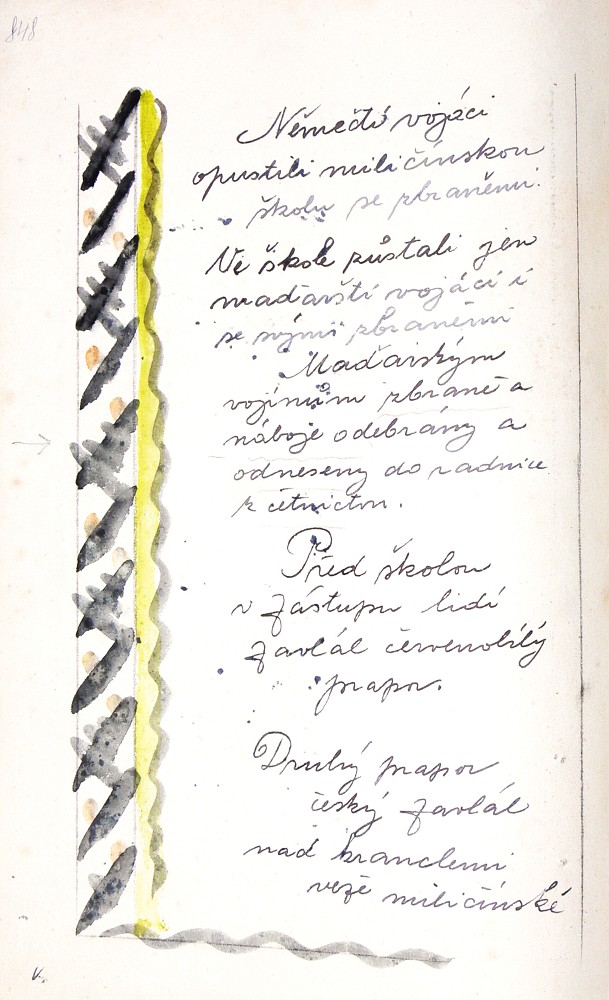 848
Němečtí vojáci
opustili miličínskou
školu se zbraněmi.
Ve škole zůstali jen
maďarští vojáci i
se svými zbraněmi
Maďarským
vojínům zbraně a
náboje odebrány a
odneseny do radnice
k četnictvu.
Před školou
v zástupu lidí
zavlál červenobílý
prapor.
Druhý prapor
český zavlál
nad branclemi
veže miličínské
V.